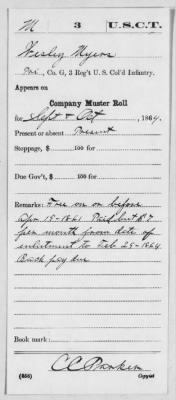 M | 3 | U.S.C.T.
Wesley Myers
Pri, Co. G, 3 Reg't U. S. Col'd Infantry.
Appears on
Company Muster Roll
for Sept & Oct, 1864.
Present or absent Present
Stoppage, $ 100 for
Due Gov't, $ 100 for
Remarks: Free on or before
Apr 19-1861 Paid but $7
per month from date of
enlistment to Feb 29-1864
Back pay due
Book mark:
(858) Copyist